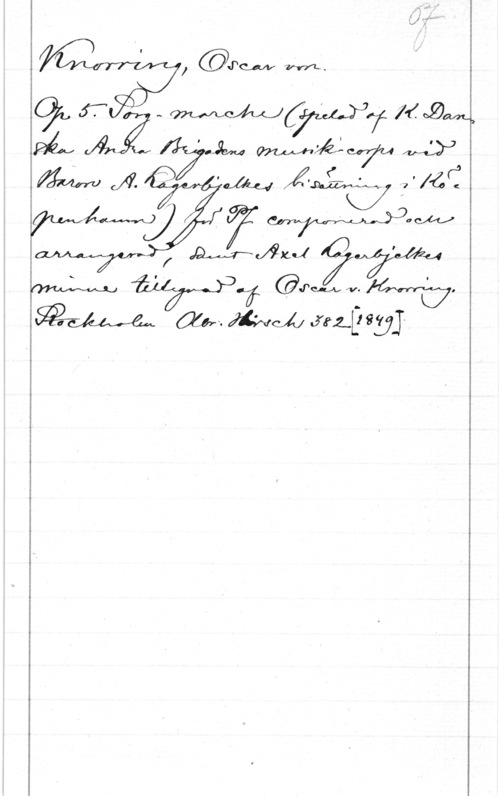 Pf
Knorring, Oscar von.
Op 5. Sorg-marche (spelad af K. Dan-
ska Andra Brigadens musik-corps vid
Baron A. Lagerbjelkes bisättning i Kö-
penhamn) för Pf componerad och
arrangerad, samt Axel Lagerbjelkes
minne tillegnad af Oscar v. Knorring.
Stockholm Abr. Hirsch 382 [1849]